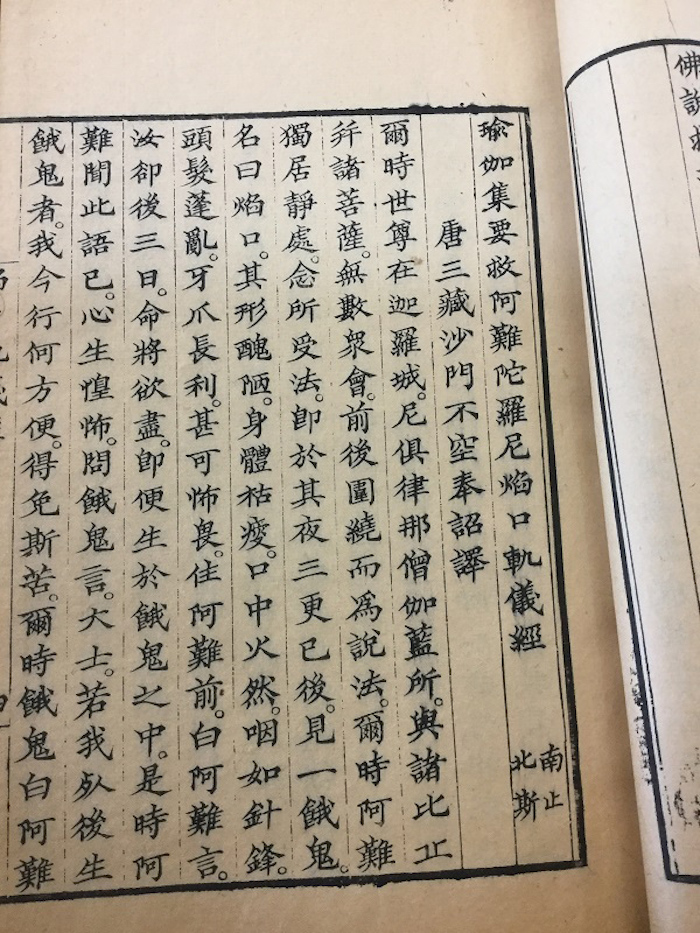 佛說
瑜伽集要救阿難陀羅尼焰口軌儀經
南止
北斯
唐三藏沙門不空奉詔譯
爾時世尊在迦羅城。尼俱律那僧伽藍所。與諸比丘
幷諸菩薩。無數眾會。前後圍繞而爲說法。爾時阿難
獨居靜處。念所受法。卽於其夜三更已後。見一餓鬼。
名曰焰口。其形醜陋。身體枯瘦。口中火然。咽如針鋒。
頭髮蓬亂。牙爪長利。甚可怖畏。住阿難前。白阿難言。
汝卻後三日。命將欲盡。卽便生於餓鬼之中。是時阿
難聞此語已。心生惶怖。問餓鬼言。大士。若我死後生
餓鬼者。我今行何方便。得免斯苦。爾時餓鬼白阿難